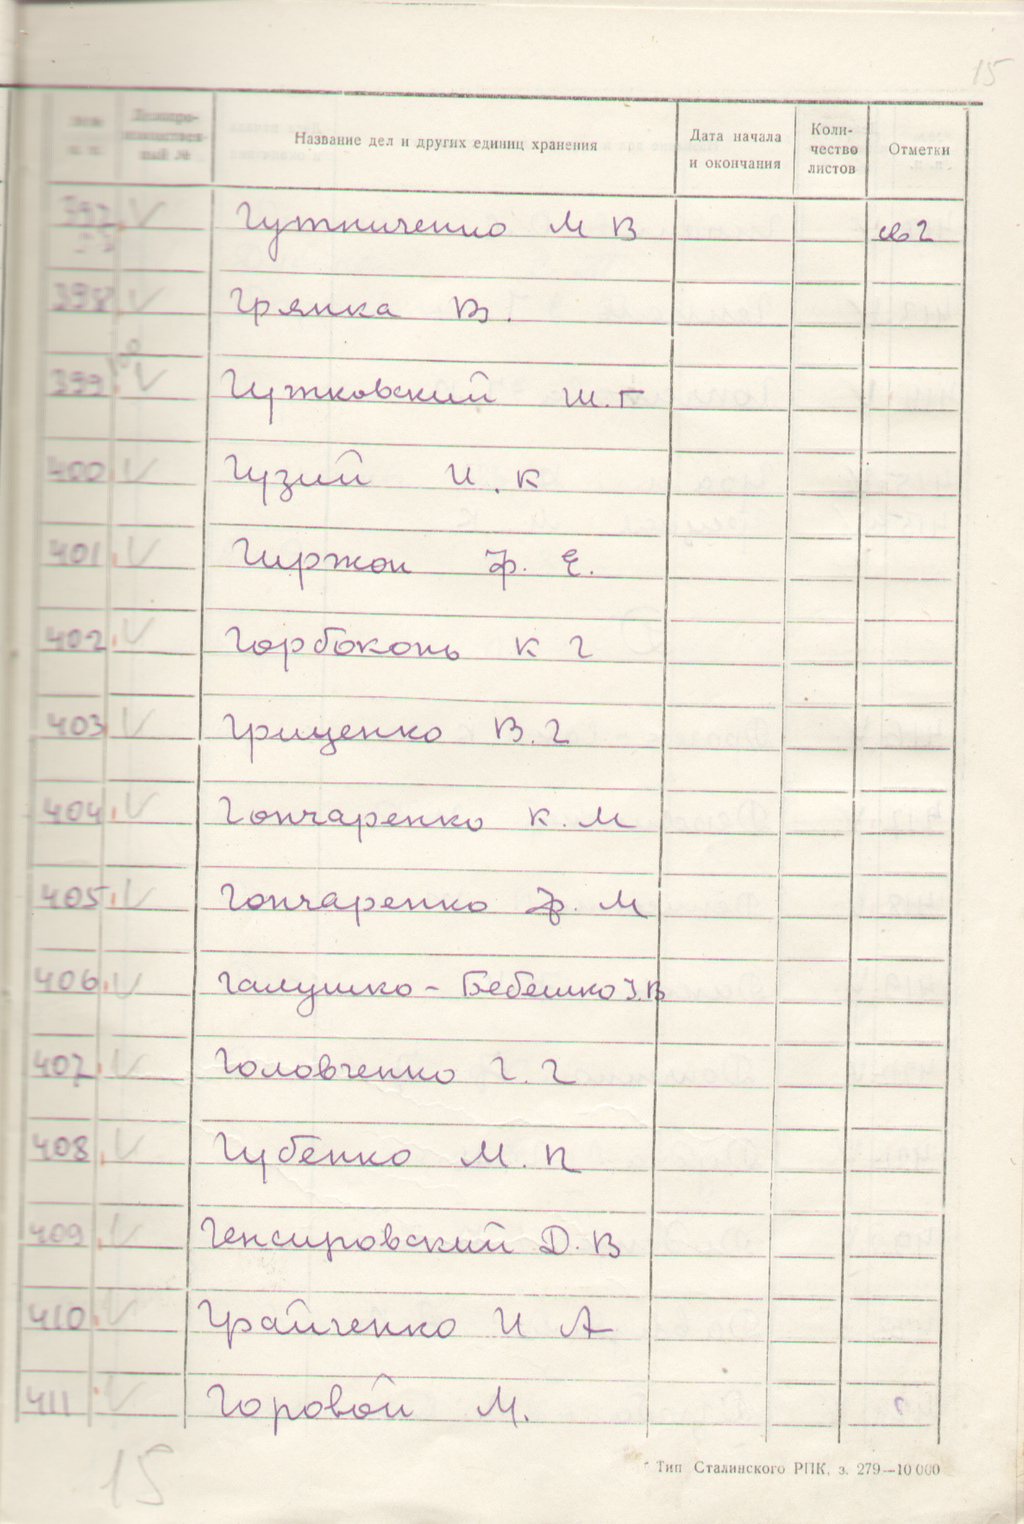 15
№№ п. п. Делопро-изводствен-ный № Название дел и других единиц хранения Дата начала и окончания Коли-чество листов Отметки
397. V Гутниченко М В св 2
398. V Грянка В.
399. V Гутковский Ш.Г
400 V Гузий И. К
401. V Гиржон Ф. Е.
402. V Горбоконь К Г
403. V Грищенко В. Г
404. V Гончаренко К. М
405. V Гончаренко Ф. М
406. V Галушко - Бебешко З.В
407. V Головченко Г. Г
408. V Губенко М. П
409. V Генсировский Д. В
410. V Грайченко И А
411 V Горовой М.
Тип Сталинского РПК, з. 279—10 000
15